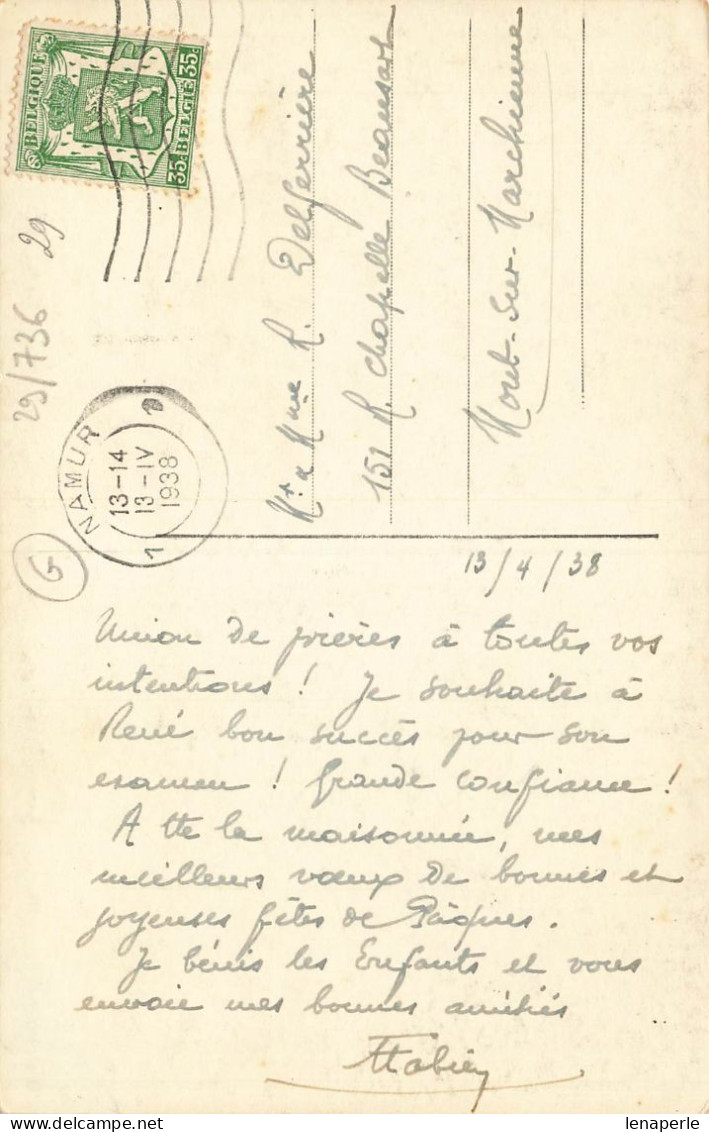 BELGIQUE 35c
35c BELGIË
29
29/736
NAMUR
13-14
13-IV
1938
1
G
Mr & Mme R. Delferrière
151 R. Chapelle Beaussart
Mont-sur-Marchienne
13/4/38
Union de prières à toutes vos
intentions ! Je souhaite à
René bon succès pour son
examen ! Grande confiance !
A tte la maisonnée, mes
meilleurs vœux de bonnes et
joyeuses fêtes de Pâques.
Je bénis les Enfants et vous
envoie mes bonnes amitiés
lenaperle